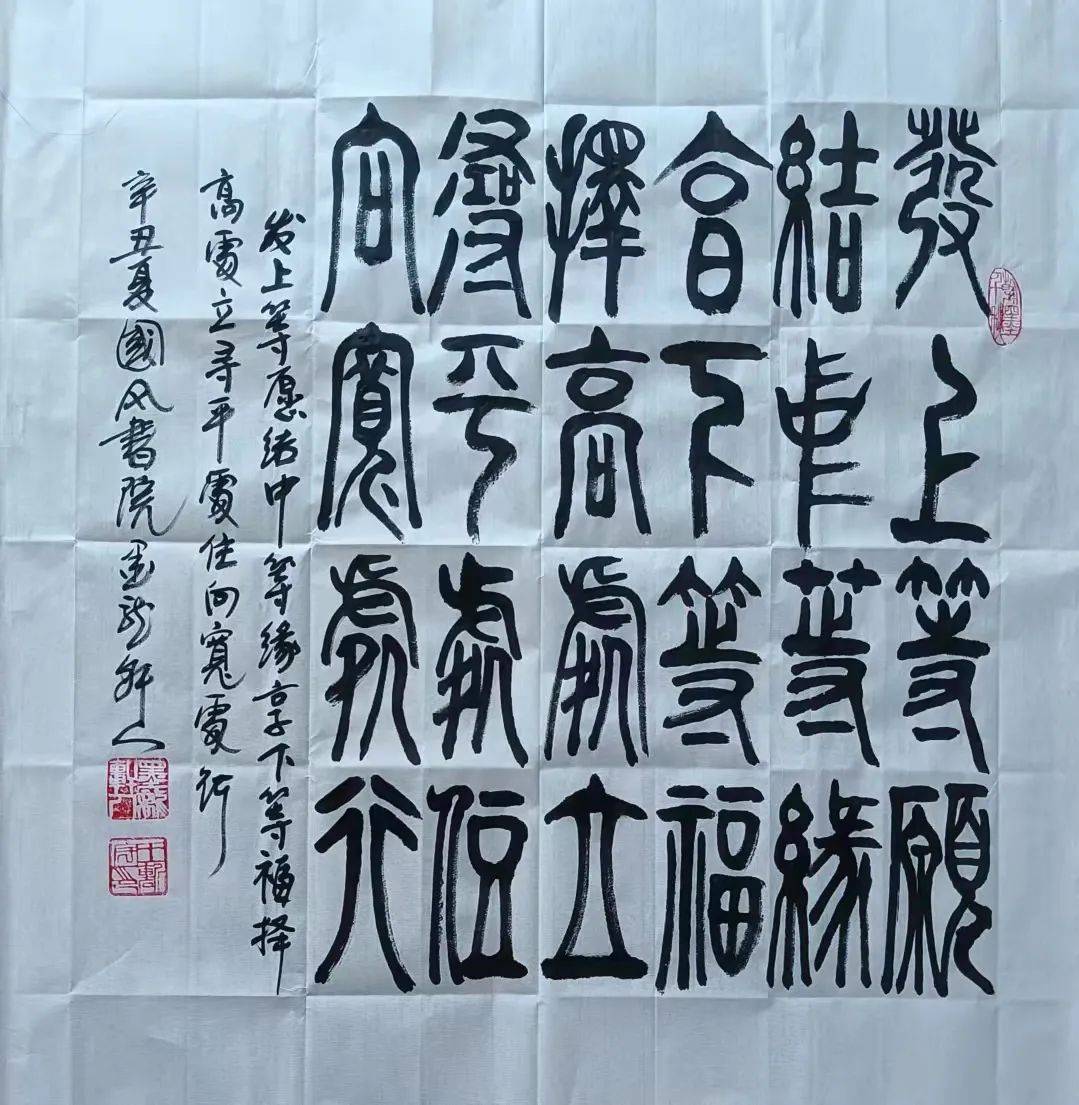 發上等願
結中等緣
享下等福
擇高處立
尋平處住
向寬處行
发上等愿结中等缘享下等福择
高處立寻平處住向寬處行
辛丑夏國风書院墨龙轩人